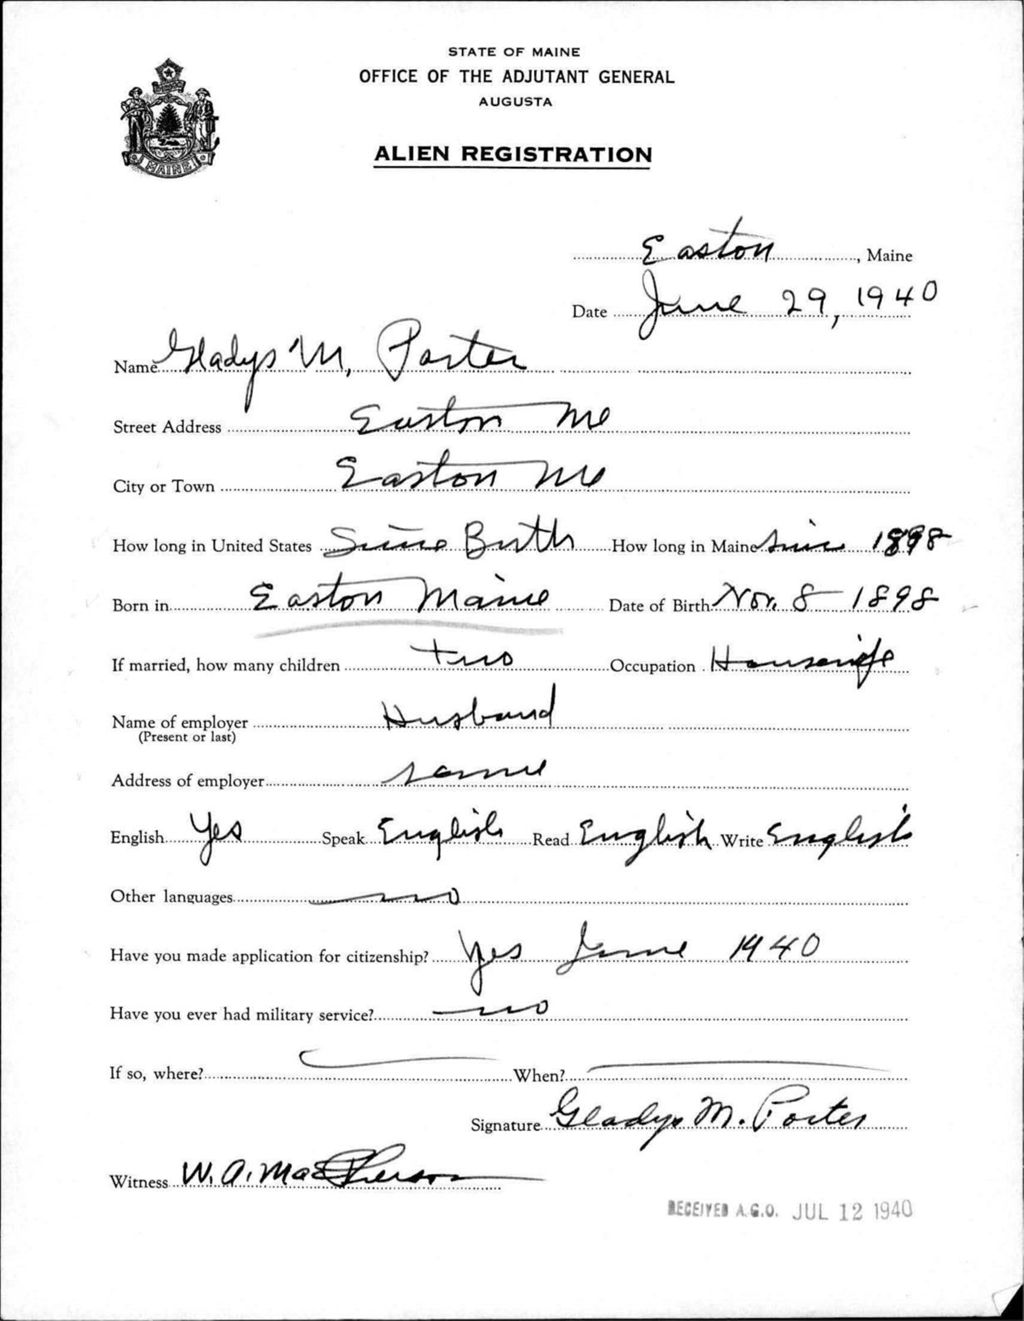 STATE OF MAINE
OFFICE OF THE ADJUTANT GENERAL
AUGUSTA
ALIEN REGISTRATION
MAINE
Easton, Maine
Date June 29, 1940
Name Gladys M. Porter
Street Address Easton Me
City or Town Easton Me
How long in United States Since Birth How long in Maine Since 1898
Born in Easton Maine Date of Birth Nov. 8 - 1898
If married, how many children two Occupation Housewife
Name of employer Husband
(Present or last)
Address of employer same
English Yes Speak English Read English Write English
Other languages no
Have you made application for citizenship? Yes June 1940
Have you ever had military service? no
If so, where? When?
Signature Gladys M. Porter
Witness W. A. MacPherson
RECEIVED A.G.O. JUL 12 1940